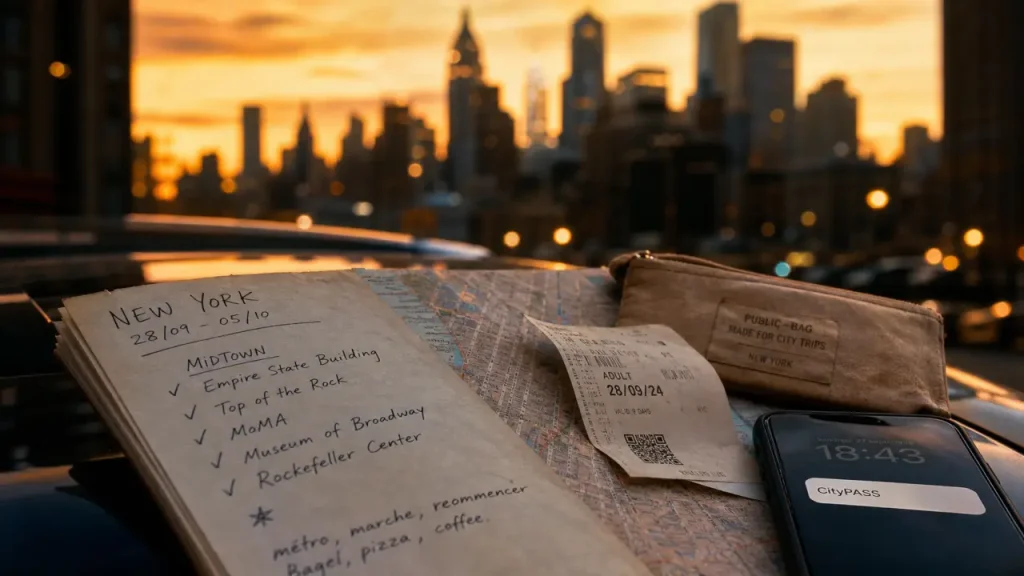 NEW YORK
28/09 - 05/10
MIDTOWN
✓ Empire State Building
✓ Top of the Rock
✓ MoMA
✓ Museum of Broadway
✓ Rockefeller Center
métro, marche, reommencer
Bagel, pizza, coffee.
ADULT
28/09/24
PUBLIC-BAG
MADE FOR CITY TRIPS
NEW YORK
18:43
CityPASS